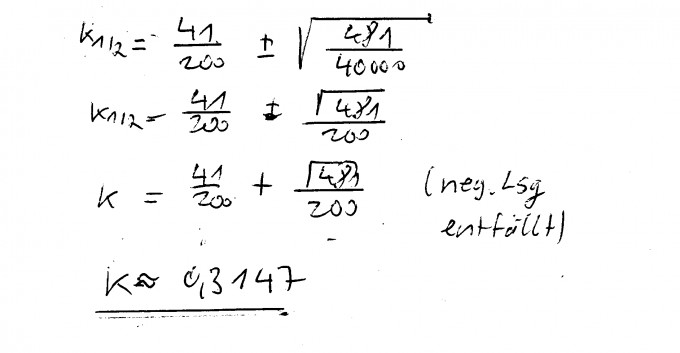 k₁/₂ = 41/200 ± √(481/40000)
k₁/₂ = 41/200 ± √481/200
k = 41/200 + √481/200 (neg. Lsg
entfällt)
k ≈ 0,3147